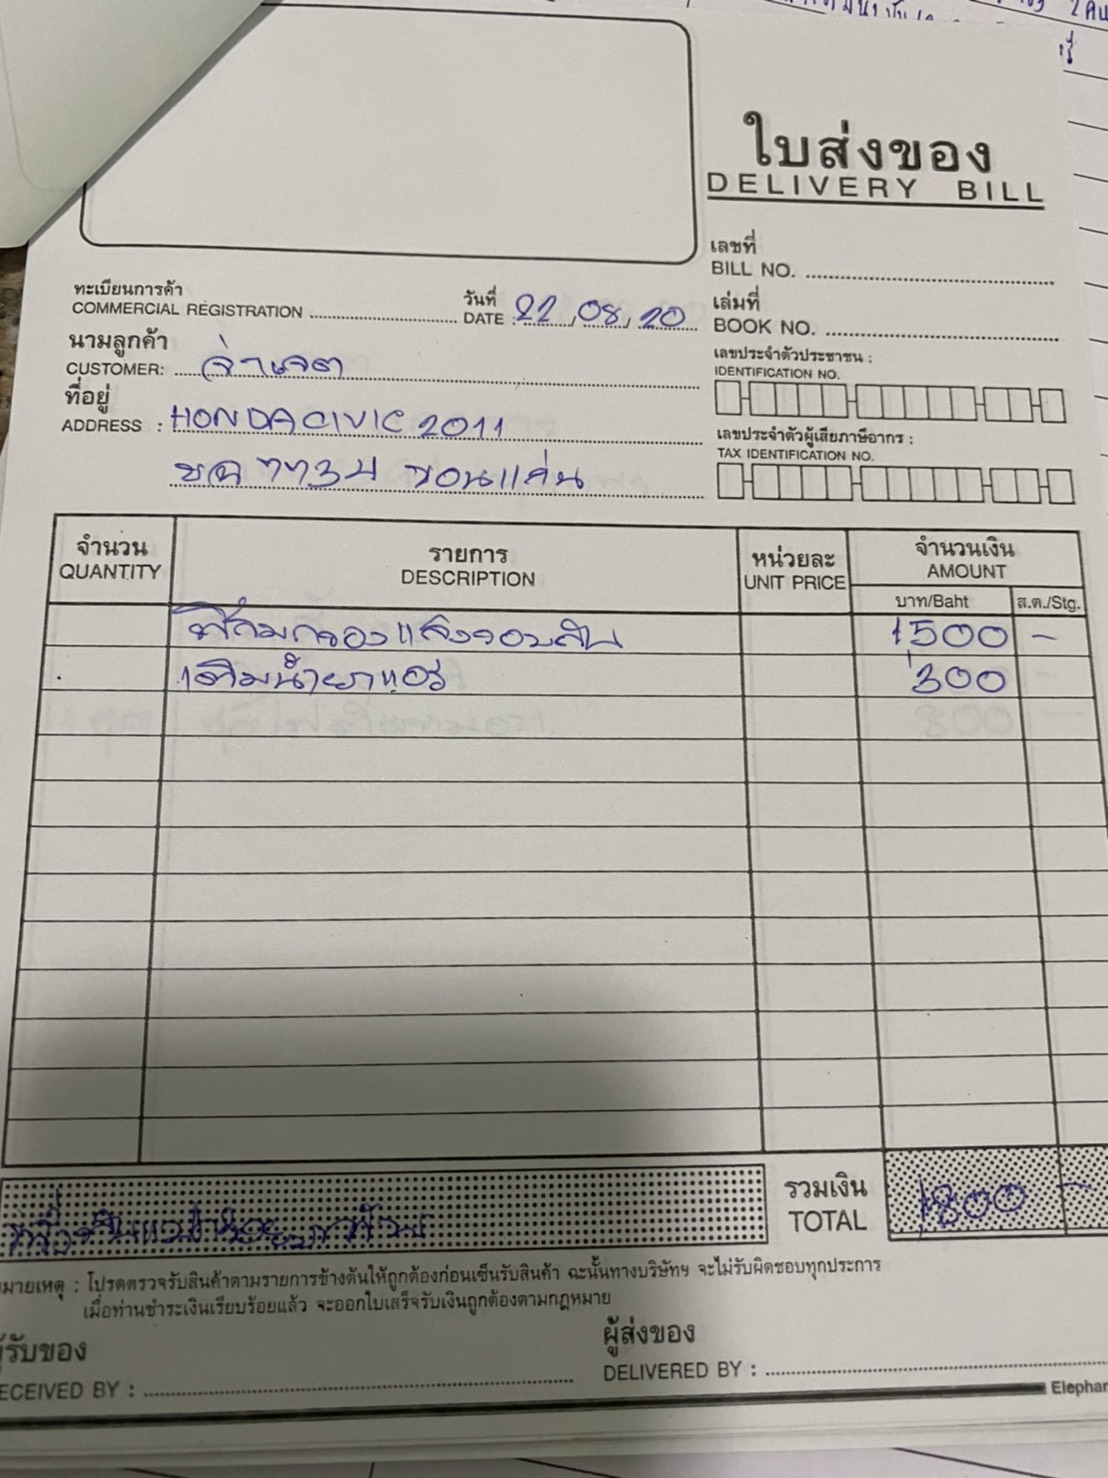 ใบส่งของ
DELIVERY BILL
เลขที่
BILL NO.
ทะเบียนการค้า
COMMERCIAL REGISTRATION
วันที่
DATE : 22,08,20
เล่มที่
BOOK NO.
นามลูกค้า
CUSTOMER: จ่าเจต
เลขประจำตัวประชาชน :
IDENTIFICATION NO.
ที่อยู่
ADDRESS : HONDA CIVIC 2011
ขฉ 7734 ขอนแก่น
เลขประจำตัวผู้เสียภาษีอากร :
TAX IDENTIFICATION NO.
จำนวน
QUANTITY
รายการ
DESCRIPTION
หน่วยละ
UNIT PRICE
จำนวนเงิน
AMOUNT
บาท/Baht
ส.ต./Stg.
ฟิล์มกรองแสงรอบคัน 1500 -
เติมน้ำยาแอร์ 300
รวมเงิน
TOTAL 1800 -
มายเหตุ : โปรดตรวจรับสินค้าตามรายการข้างต้นให้ถูกต้องก่อนเซ็นรับสินค้า ฉะนั้นทางบริษัทฯ จะไม่รับผิดชอบทุกประการ
เมื่อท่านชำระเงินเรียบร้อยแล้ว จะออกใบเสร็จรับเงินถูกต้องตามกฎหมาย
ผู้รับของ
ECEIVED BY :
ผู้ส่งของ
DELIVERED BY :
Elephan